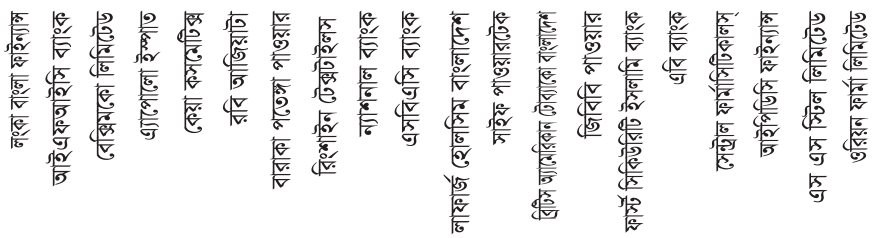 লংকা বাংলা ফাইন্যান্স
আইএফআইসি ব্যাংক
বেক্সিমকো লিমিটেড
এ্যাপোলো ইস্পাত
কেয়া কসমেটিক্স
রবি আজিয়াটা
বারাকা পতেঙ্গা পাওয়ার
রিংশাইন টেক্সটাইলস
ন্যাশনাল ব্যাংক
এসবিএসি ব্যাংক
লাফার্জ হোলসিম বাংলাদেশ
সাইফ পাওয়ারটেক
ব্রিটিস অ্যামেরিকান টোব্যাকো বাংলাদেশ
জিবিবি পাওয়ার
ফার্স্ট সিকিউরিটি ইসলামি ব্যাংক
এবি ব্যাংক
সেন্ট্রাল ফার্মাসিটিকালস্
আইপিডিসি ফাইন্যান্স
এস এস স্টিল লিমিটেড
ওরিয়ন ফার্মা লিমিটেড